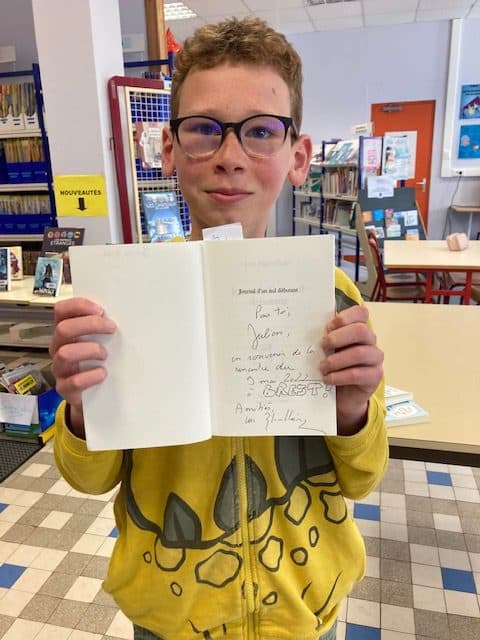 NOUVEAUTÉS
Journal d'un nul débutant
Pour toi,
Julien,
un souvenir de la
rencontre du
3 mai 2022
à BREST!
Amitiés,